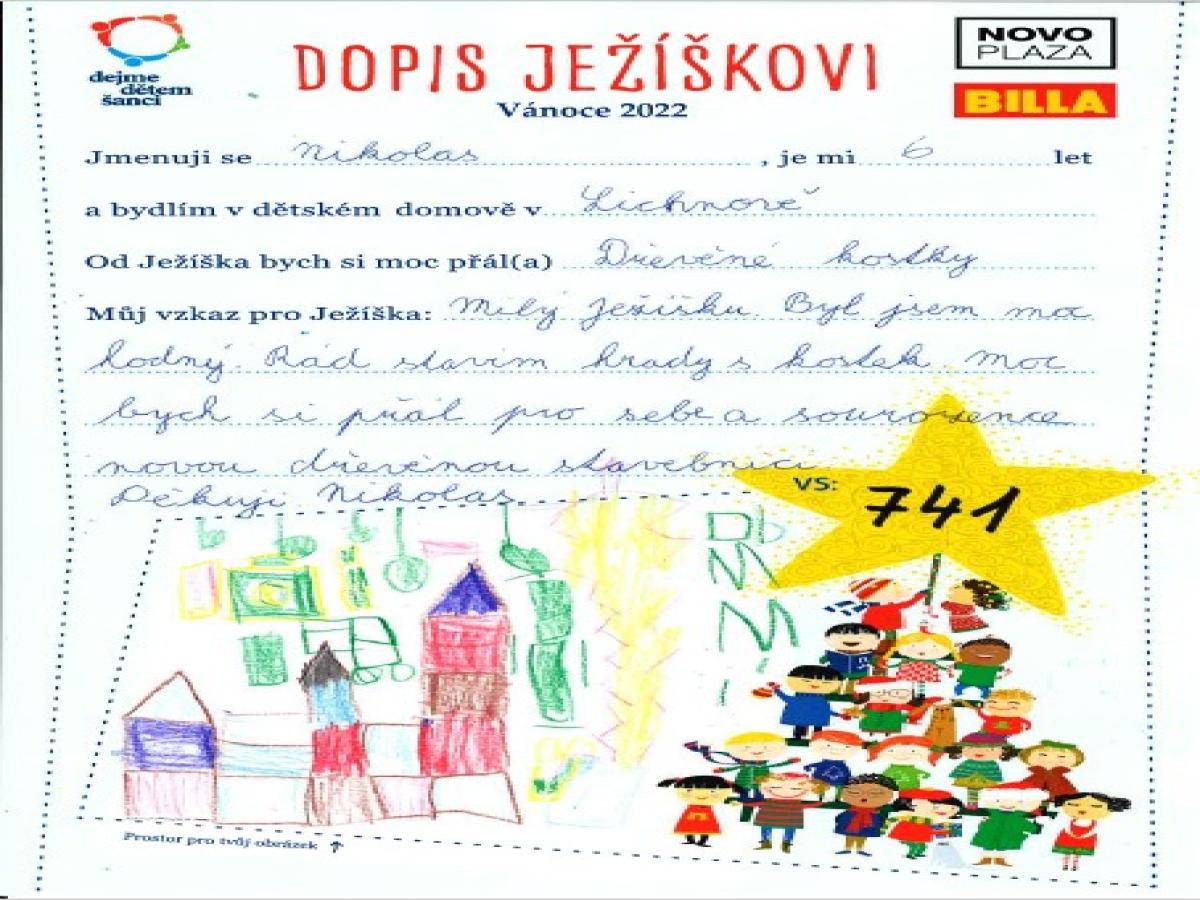 dejme
dětem
šanci
DOPIS JEŽÍŠKOVI
Vánoce 2022
NOVO
PLAZA
BILLA
Jmenuji se Nikolas, je mi 6 let
a bydlím v dětském domově v Lichnově
Od Ježíška bych si moc přál(a) Dřevěné kostky
Můj vzkaz pro Ježíška: Milý Ježíšku. Byl jsem moc
hodný. Rád stavím hrady s kostek. Moc
bych si přál pro sebe a sourozence
novou dřevěnou stavebnici
Děkuji Nikolas
VS: 741
Prostor pro tvůj obrázek